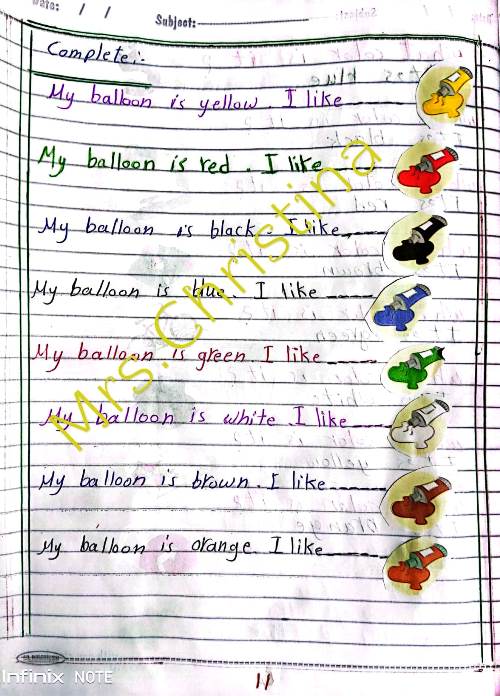 Date: / /
Subject:
Complete:-
My balloon is yellow. I like
My balloon is red. I like
My balloon is black. I like
My balloon is blue. I like
My balloon is green. I like
My balloon is white. I like
My balloon is brown. I like
My balloon is orange. I like
Mrs.Christina
Infinix NOTE
11